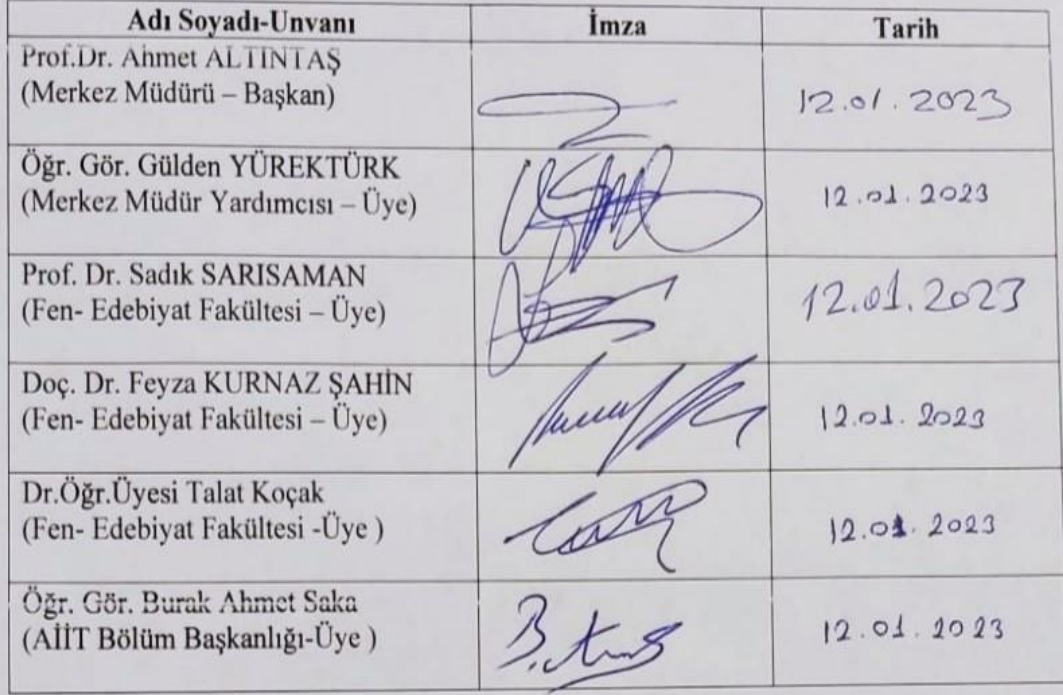 Adı Soyadı-Unvanı İmza Tarih
Prof.Dr. Ahmet ALTINTAŞ
(Merkez Müdürü – Başkan) 12.01.2023
Öğr. Gör. Gülden YÜREKTÜRK
(Merkez Müdür Yardımcısı – Üye) 12.01.2023
Prof. Dr. Sadık SARISAMAN
(Fen- Edebiyat Fakültesi – Üye) 12.01.2023
Doç. Dr. Feyza KURNAZ ŞAHİN
(Fen- Edebiyat Fakültesi – Üye) 12.01.2023
Dr.Öğr.Üyesi Talat Koçak
(Fen- Edebiyat Fakültesi -Üye ) 12.01.2023
Öğr. Gör. Burak Ahmet Saka
(AİİT Bölüm Başkanlığı-Üye ) 12.01.2023